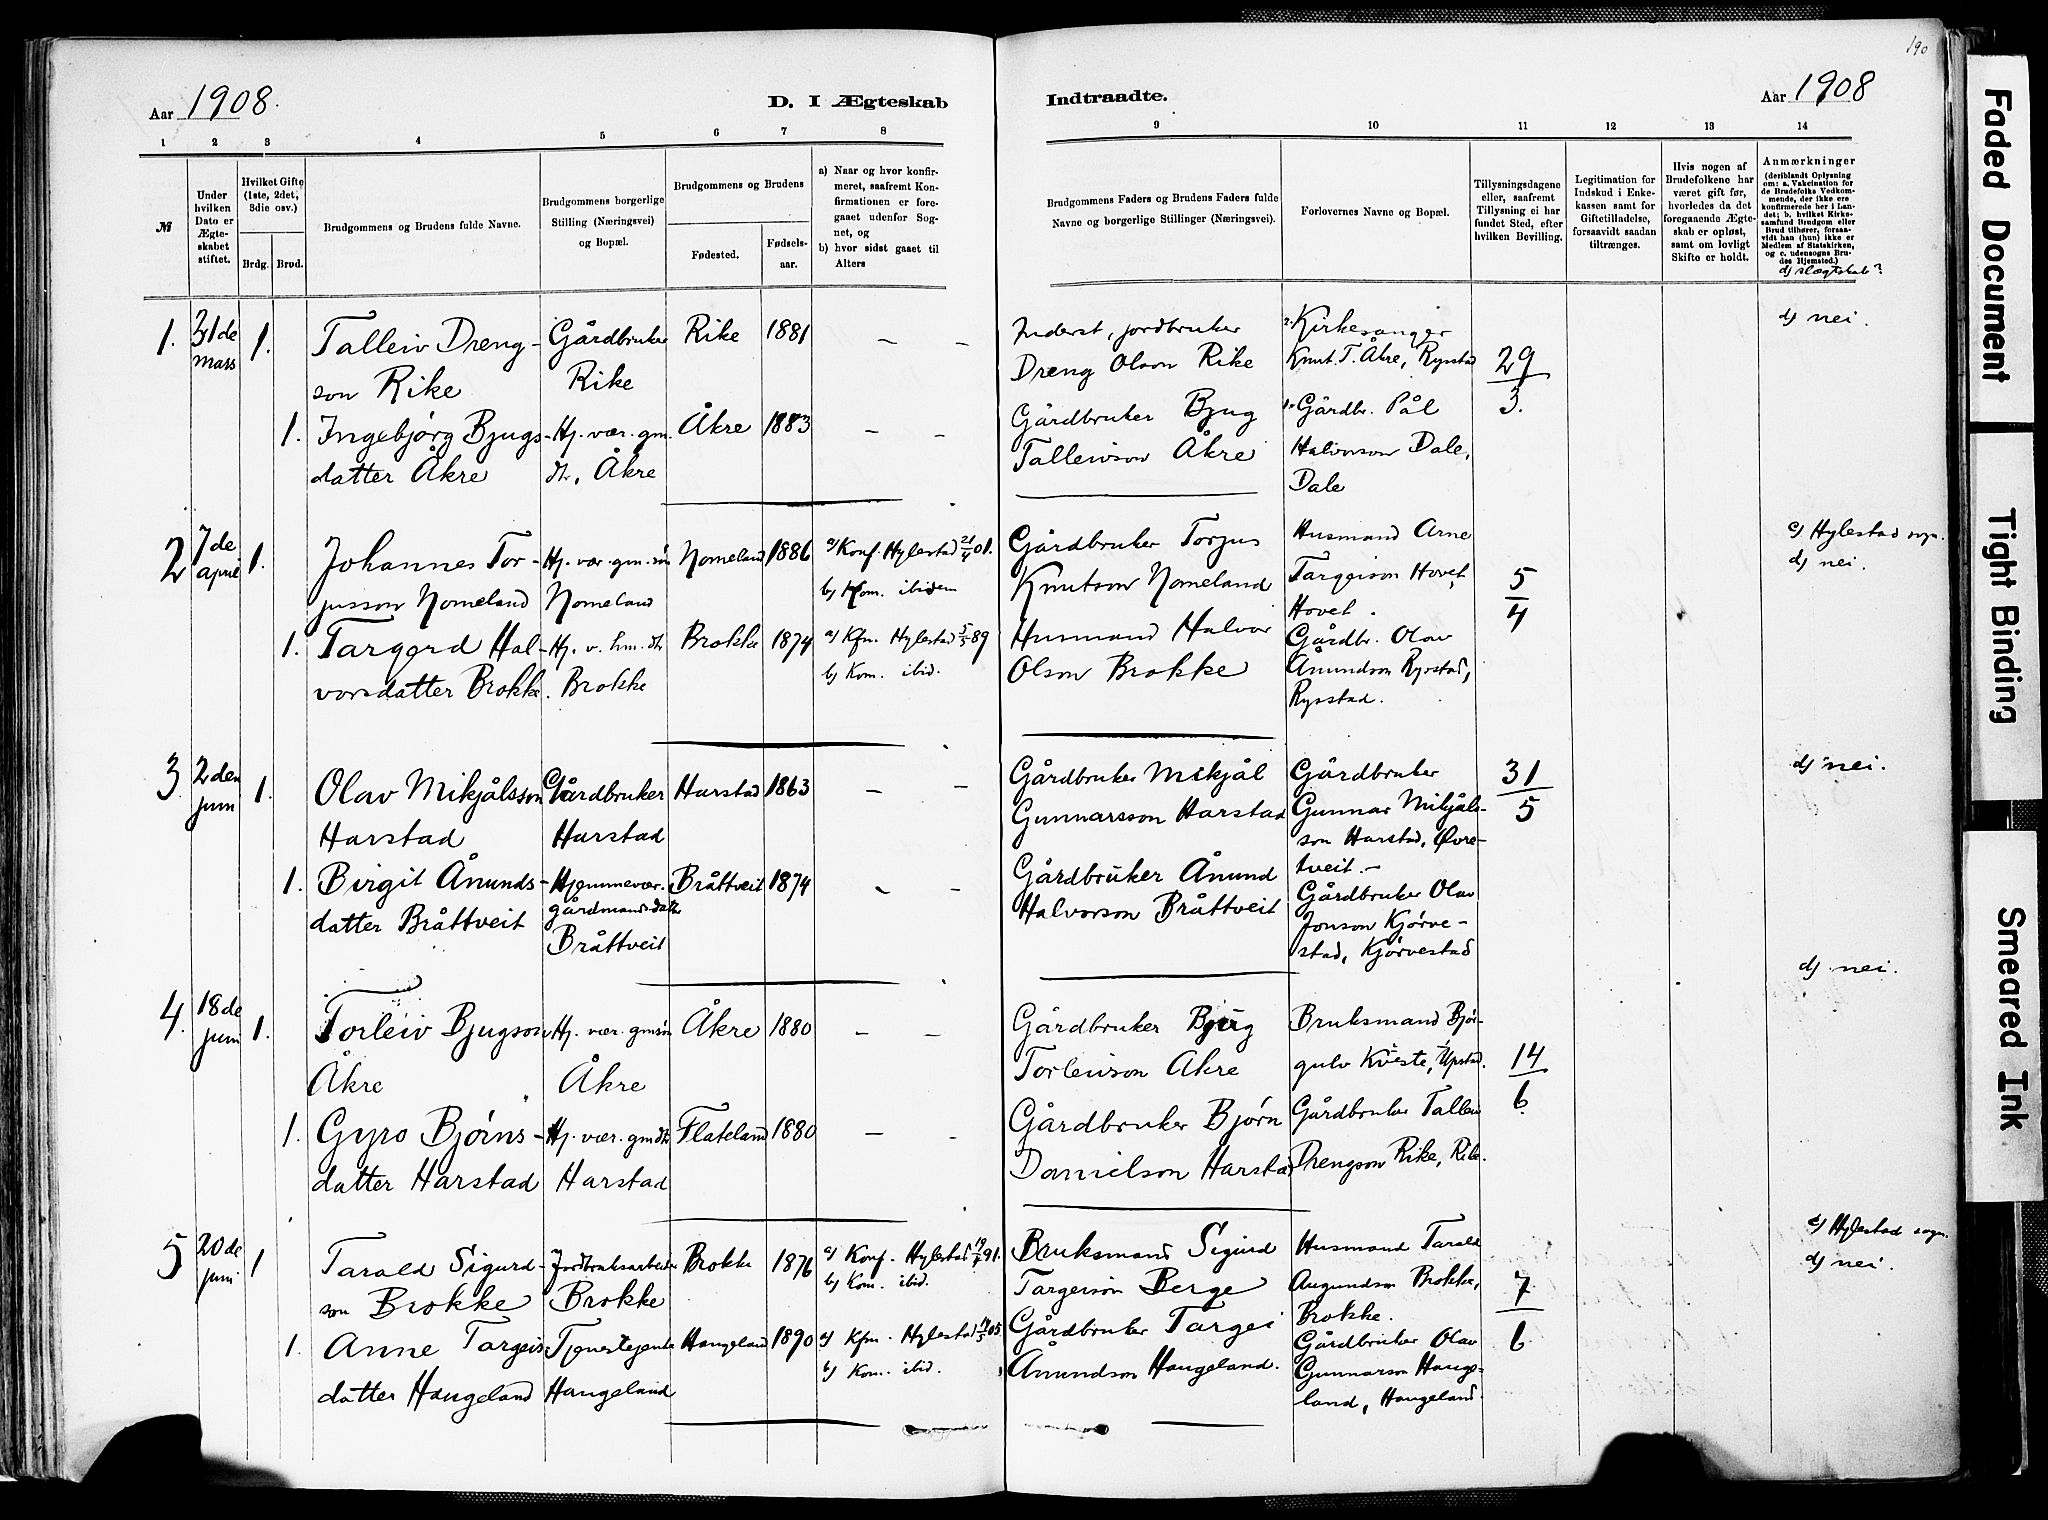 190
Aar 1908.
D. I Ægteskab
Indtraadte.
Aar 1908
1 2 3 4 5 6 7 8 9 10 11 12 13 14
№
Under hvilken Dato er Ægteskabet stiftet.
Hvilket Gifte (1ste, 2det, 3die osv.)
Brdg. Brud.
Brudgommens og Brudens fulde Navne.
Brudgommens borgerlige Stilling (Næringsvei) og Bopæl.
Brudgommens og Brudens
Fødested.
Fødselsaar.
a) Naar og hvor konfirmeret, saafremt Konfirmationen er foregaaet udenfor Sognet, og
b) hvor sidst gaaet til Alters
Brudgommens Faders og Brudens Faders fulde Navne og borgerlige Stillinger (Næringsvei).
Forlovernes Navne og Bopæl.
Tillysningsdagene eller, saafremt Tillysning ei har fundet Sted, efter hvilken Bevilling.
Legitimation for Indskud i Enkekassen samt for Giftetilladelse, forsaavidt saadan tiltrænges.
Hvis nogen af Brudefolkene har været gift før, hvorledes da det foregaaende Ægteskab er opløst, samt om lovligt Skifte er holdt.
Anmærkninger (deriblandt Oplysning om: a. Vakcination for de Brudefolks Vedkommende, der ikke ere konfirmerede her i Landet; b. hvilket Kirkesamfund Brudgom eller Brud tilhører, forsaavidt han (hun) ikke er Medlem af Statskirken, og c. udensogns Brudes Hjemsted.)
d) slægtskab?
1. 31de mars 1. Talleiv Drengson Rike
Gårdbruker Rike
Rike 1881 – –
Inderst, jordbruker Dreng Olson Rike
2. Kirkesanger Knut T. Åkre, Rysstad
29/3.
d) nei.
1. Ingebjørg Bjugsdatter Åkre
Hj. vær. gm. dtr, Åkre
Åkre 1883 – –
Gårdbruker Bjug Talleivson Åkre
1. Gårdbr. Pål Halvorson Dale, Dale
2 7de april 1. Johannes Torjusson Nomeland
Hj. vær. gm. søn Nomeland
Nomeland 1886
a) Konf. Hylestad 21/4 01.
b) Kom. ibidem
Gårdbruker Torjus Knutson Nomeland
Husmand Arne Targeison Hovet, Hovet.
5/4
c) Hylestad sogn.
d) nei.
1. Targerd Halvorsdatter Brokke.
Hj. v. hm. dtr Brokke
Brokke 1874
a) Kfm. Hylestad 5/5 89
b) Kom. ibid.
Husmand Halvor Olson Brokke
Gårdbr. Olav Ånundson Rysstad, Rysstad.
3 2den juni 1. Olav Mikjålsson Harstad
Gårdbruker Harstad
Harstad 1863 – –
Gårdbruker Mikjål Gunnarsson Harstad
Gårdbruker Gunnar Mikjålsson Harstad, Øvretveit. –
31/5
d) nei.
1. Birgit Ånundsdatter Bråttveit
Hjemmevær. gårdmandsdatter Bråttveit
Bråttveit 1874 – –
Gårdbruker Ånund Halvorson Bråttveit
Gårdbruker Olav Jonson Kjørvestad, Kjørvestad
4. 18de juni 1. Torleiv Bjugson Åkre
Hj. vær. gmsøn Åkre
Åkre 1880 – –
Gårdbruker Bjug Torleivson Åkre
Bruksmand Bjørgulv Kveste, Upstad.
14/6
d) nei.
1. Gyro Bjørnsdatter Harstad
Hj. vær. gmdtr Harstad
Flateland 1880 – –
Gårdbruker Bjørn Danielson Harstad
Gårdbruker Talleiv Drengson Rike, Rike.
5 20de juni 1 Tarald Sigurdson Brokke
Jordbruksarbeider Brokke
Brokke 1876
a) Konf. Hylestad 19/7 91.
b) Kom. ibid.
Bruksmand Sigurd Targeison Berge
Husmand Tarald Augundson Brokke, Brokke.
7/6
c) Hylestad sogn.
d) nei.
1. Anne Targeisdatter Haugeland
Tjenestejente Haugeland
Haugeland 1890
a) Kfm. Hylestad 14/5 05.
b) Kom. ibid.
Gårdbruker Targei Ånundson Haugeland.
Gårdbruker Olav Gunnarson Haugeland, Haugeland.
Faded Document
Tight Binding
Smeared Ink